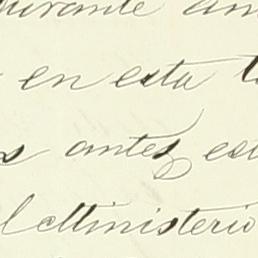 durante an
en esta t
s antes est
l Ministerio